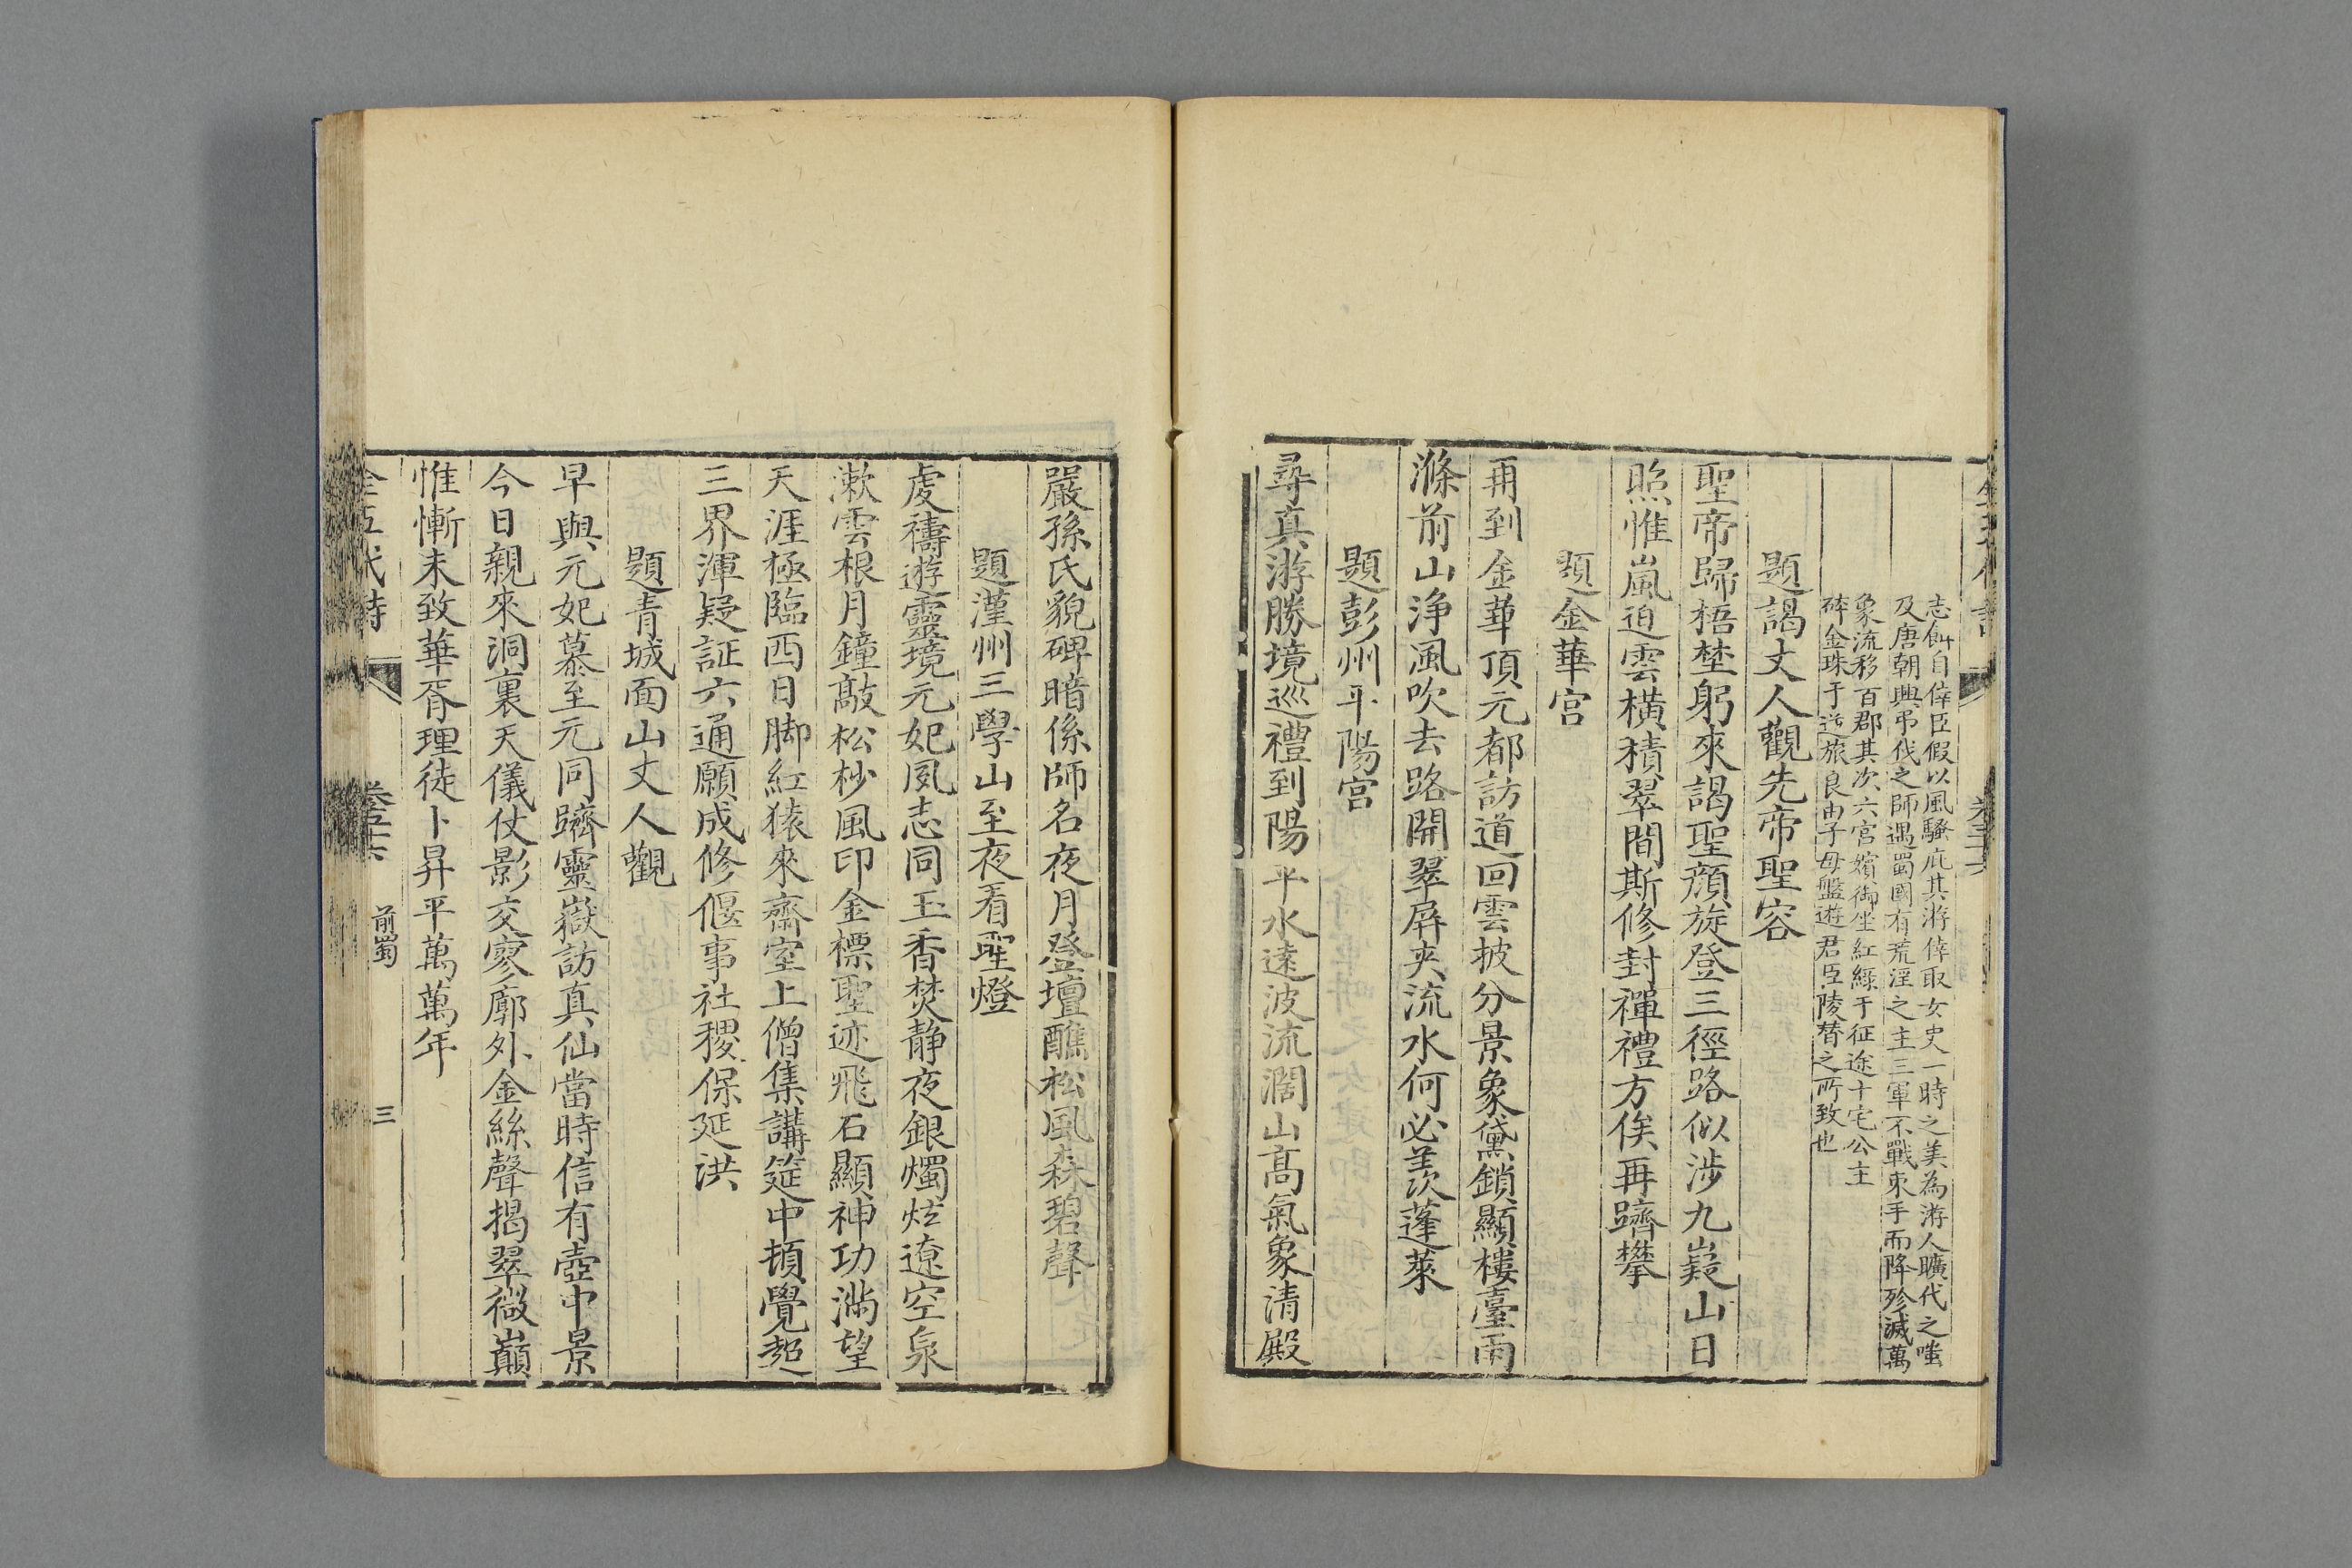 志飾自倖臣假以風騷庇其游倖取女史一時之美為游人曠代之嗤
及唐朝興弔伐之師遇蜀國有荒淫之主三軍不戰束手而降殄滅萬
象流移百郡其次六宮嬪御坐紅綠于征途十宅公主
碎金珠于逆旅良由子母盤遊君臣陵替之所致也
題謁丈人觀先帝聖容
聖帝歸梧埜躬來謁聖顔旋登三徑路似涉九嶷山日
照惟嵐迫雲橫積翠間斯修封禪禮方俟再躋攀
題金華宮
再到金華頂元都訪道回雲披分景象黛鎖顯樓臺雨
滌前山浄風吹去路開翠屏夾流水何必羨蓬萊
題彭州平陽宮
尋真游勝境巡禮到陽平水遠波流濶山高氣象清殿
嚴孫氏貌碑暗係師名夜月登壇醮松風森碧聲
題漢州三學山至夜看聖燈
虔禱遊靈境元妃夙志同玉香焚静夜銀燭炫遼空泉
漱雲根月鐘敲松杪風印金標聖迹飛石顯神功滿望
天涯極臨西日脚紅猿來齋室上僧集講筵中頓覺超
三界渾疑証六通願成修偃事社稷保延洪
題青城面山丈人觀
早與元妃慕至元同躋靈嶽訪真仙當時信有壺中景
今日親來洞裏天儀仗影交寥廓外金絲聲揭翠微巔
惟慚未致華胥理徒卜昇平萬萬年
全五代詩 卷五十六 前蜀 三